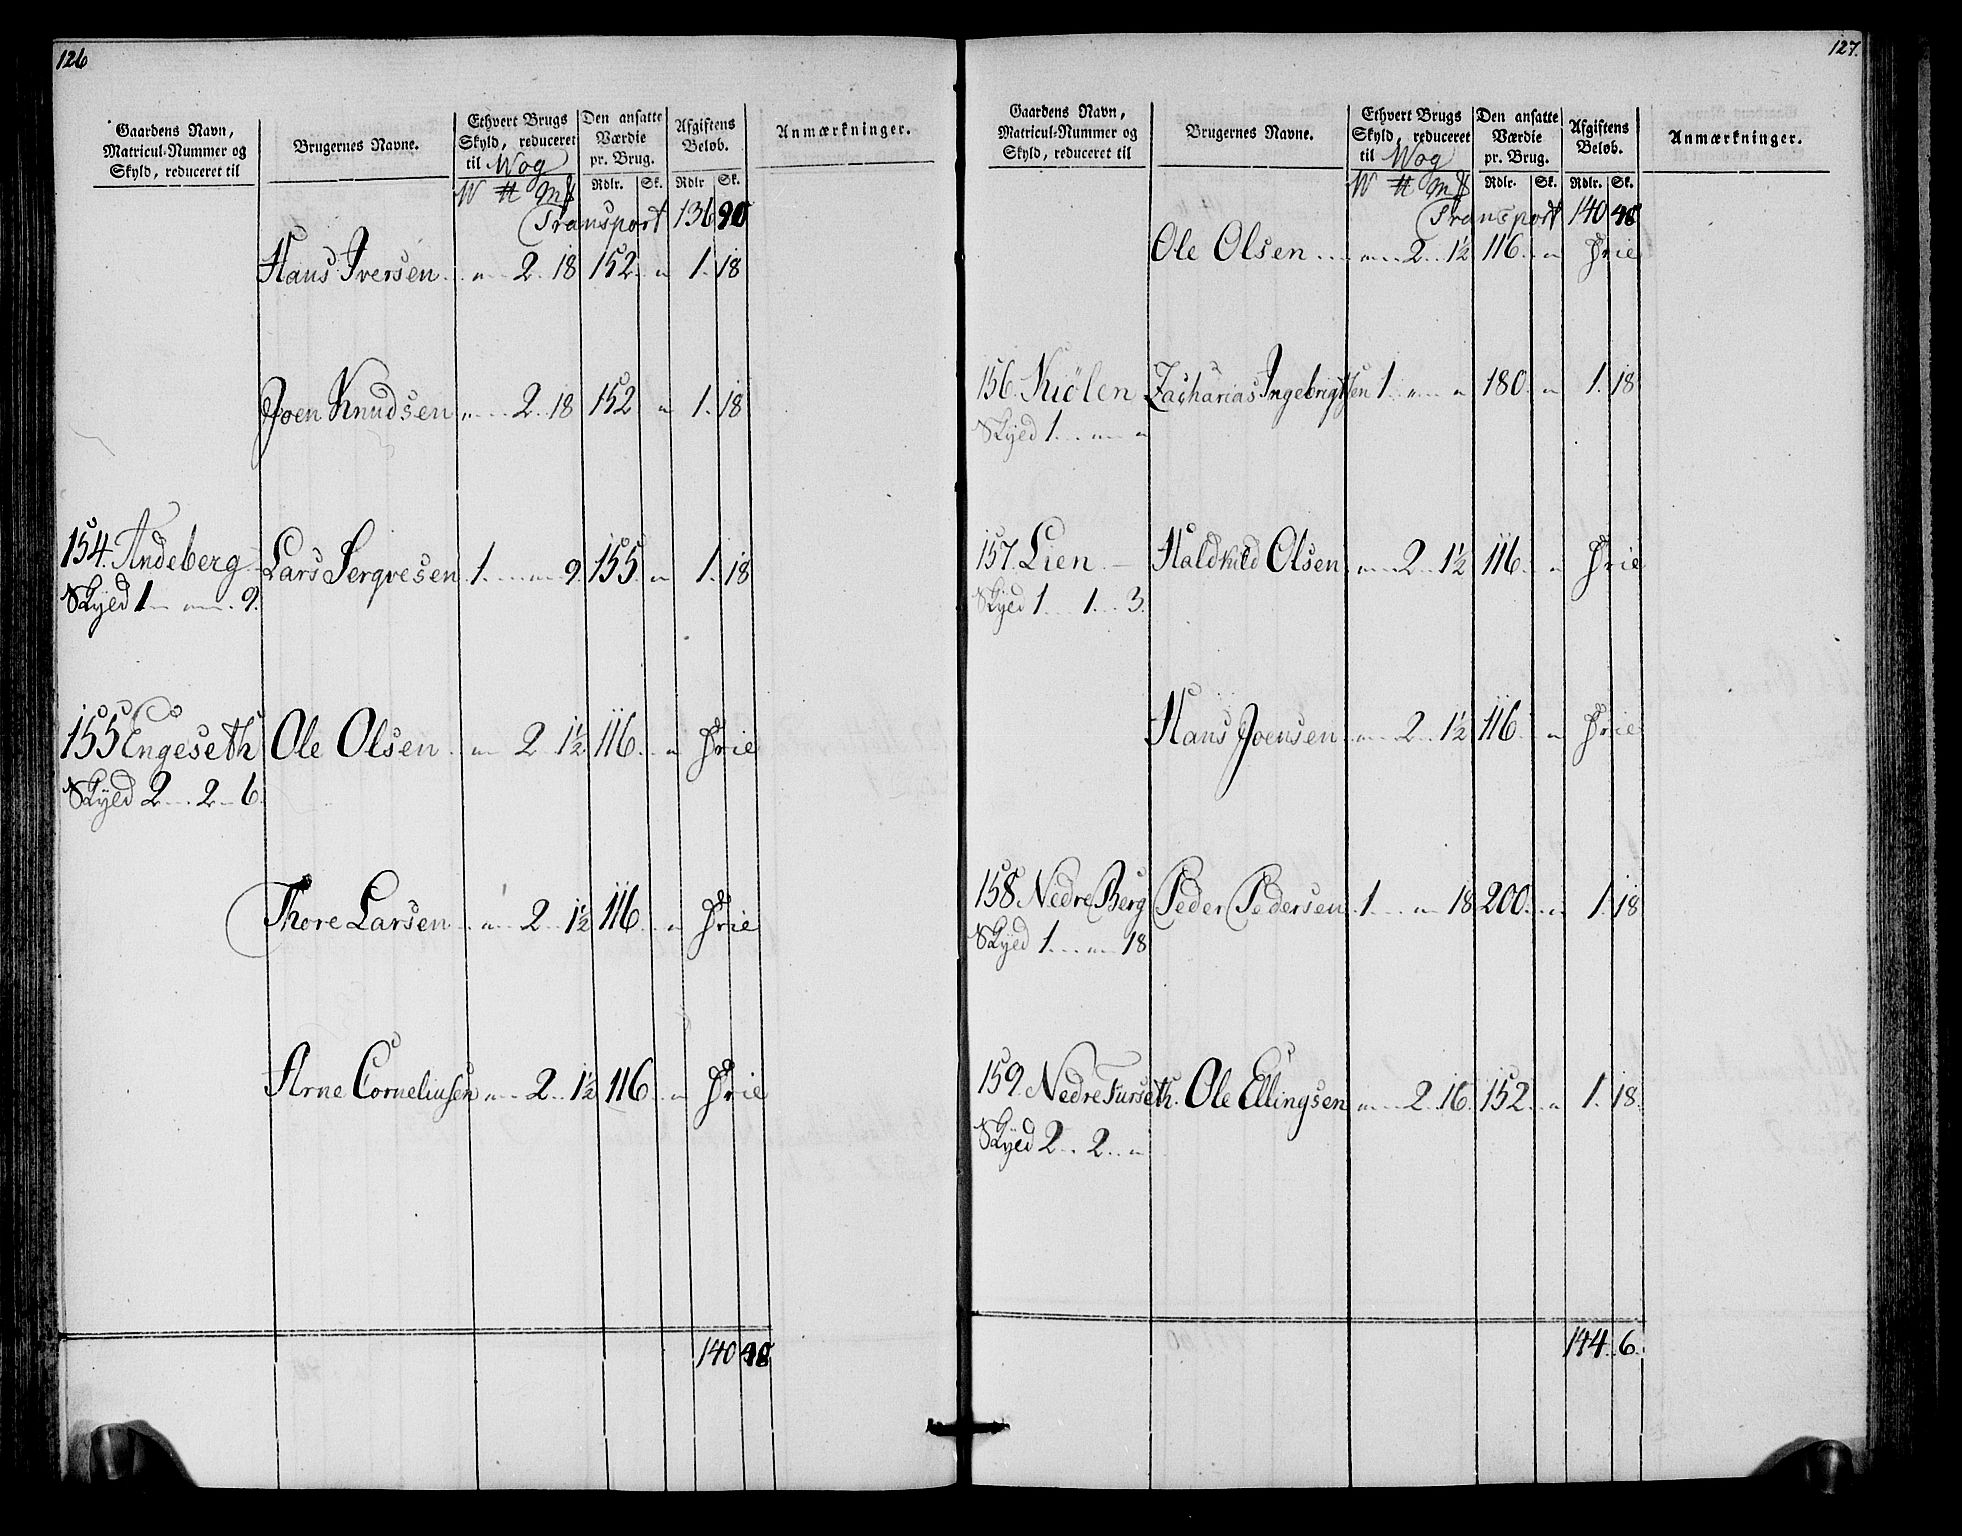 126
Gaardens Navn, Matricul-Nummer og Skyld, reduceret til
Brugernes Navne.
Ethvert Brugs Skyld, reduceret til Wog
Den ansatte Værdie pr. Brug.
Afgiftens Beløb.
Anmærkninger.
W ℔ M𝔷 Rdlr. Sk. Rdlr Sk.
Transport 136 90
Hans Iversen .. " .. 2 .. 18 152 .. " 1. 18
Joen Knudsen " .. 2 .. 18 152 " 1. 18
154. Andeberg Lars Serqvesen 1 .. " .. 9 155 .. " 1. 18
Skyld 1 .. " .. 9.
155 Engeseth Ole Olsen .. " 2 .. 1½ 116 .. " Frie
Skyld 2 .. 2 .. 6
Thore Larsen .. " .. 2 .. 1½ 116 .. " Frie
Arne Corneliusen " .. 2 .. 1½ 116 .. " Frie
140 48
127.
Gaardens Navn, Matricul-Nummer og Skyld, reduceret til
Brugernes Navne.
Ethvert Brugs Skyld, reduceret til Wog
Den ansatte Værdie pr. Brug.
Afgiftens Beløb.
Anmærkninger.
W ℔ M𝔷 Rdlr. Sk. Rdlr. Sk.
Transport 140 48
Ole Olsen ... " .. 2 .. 1½ 116 .. " Frie
156. Kiölen Zacharias Ingebrigtsen 1 .. " .. " 180 .. " 1. 18
Skyld 1 .. " .. "
157. Lien Haldkild Olsen " .. 2 .. 1½ 116 .. " Frie
Skyld 1 .. 1 .. 3.
Hans Joensen .. " .. 2 .. 1½ 116 .. " Frie
158 Nedre Berg Peder Pedersen 1 .. " 18 200 .. " 1. 18
Skyld 1 .. " .. 18
159. Nedre Furseth. Ole Ellingsen " .. 2 .. 16. 152 .. " 1. 18.
Skyld 2 .. 2 .. "
144 .. 6.